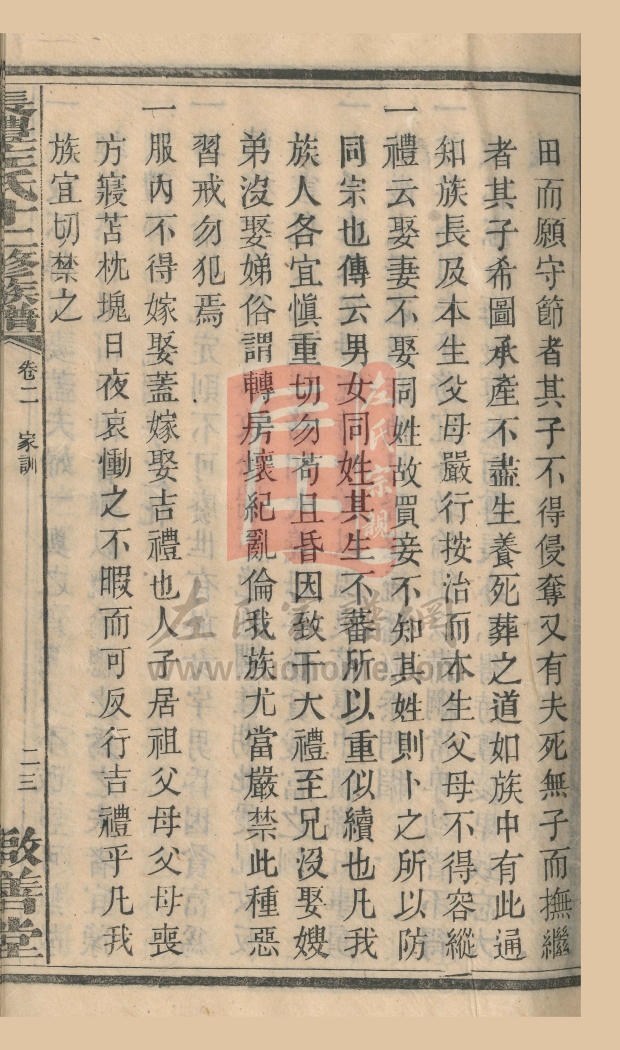 田而願守節者其子不得侵奪又有夫死無子而撫繼
者其子希圖承產不盡生養死葬之道如族中有此通
知族長及本生父母嚴行按治而本生父母不得容縱
一禮云娶妻不娶同姓故買妾不知其姓則卜之所以防
同宗也傳云男女同姓其生不蕃所以重似續也凡我
族人各宜慎重切勿苟且昏因致干大禮至兄沒娶嫂
弟沒娶娣俗謂轉房壞紀亂倫我族尤當嚴禁此種惡
習戒勿犯焉
一服內不得嫁娶蓋嫁娶吉禮也人子居祖父母父母喪
方寢苫枕塊日夜哀慟之不暇而可反行吉禮乎凡我
族宜切禁之
左氏十二修族譜
卷二 家訓
二三
啟善堂
左氏宗親
www.zuohome.com